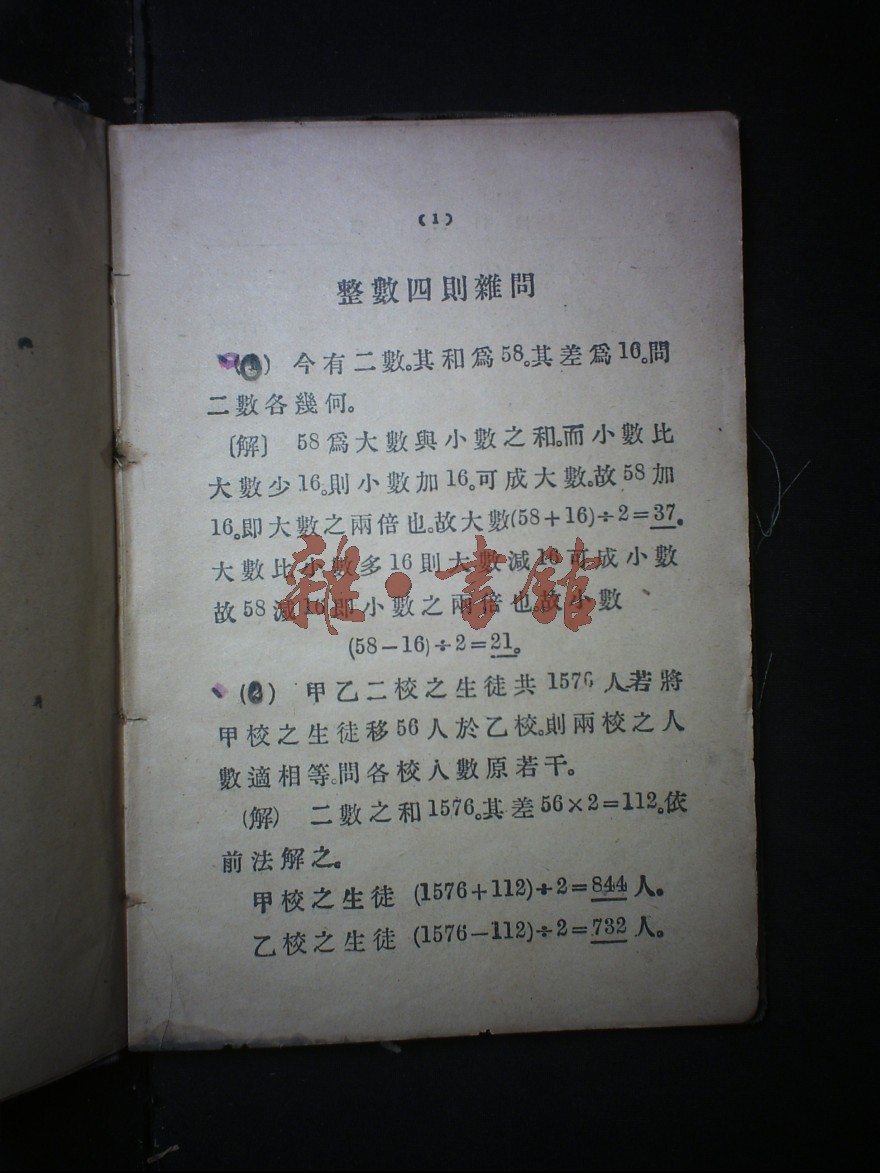 (1)
整數四則雜問
(1) 今有二數。其和爲58。其差爲16。問
二數各幾何。
〔解〕 58爲大數與小數之和。而小數比
大數少16。則小數加16。可成大數。故58加
16。即大數之兩倍也。故大數(58+16)÷2=37。
大數比小數多16則大數減16可成小數
故58減16即小數之兩倍也故小數
(58-16)÷2=21。
(2) 甲乙二校之生徒共1576人若將
甲校之生徒移56人於乙校。則兩校之人
數適相等。問各校人數原若干。
(解) 二數之和1576。其差56×2=112。依
前法解之。
甲校之生徒 (1576+112)÷2=844人。
乙校之生徒 (1576-112)÷2=732人。
雜·書館